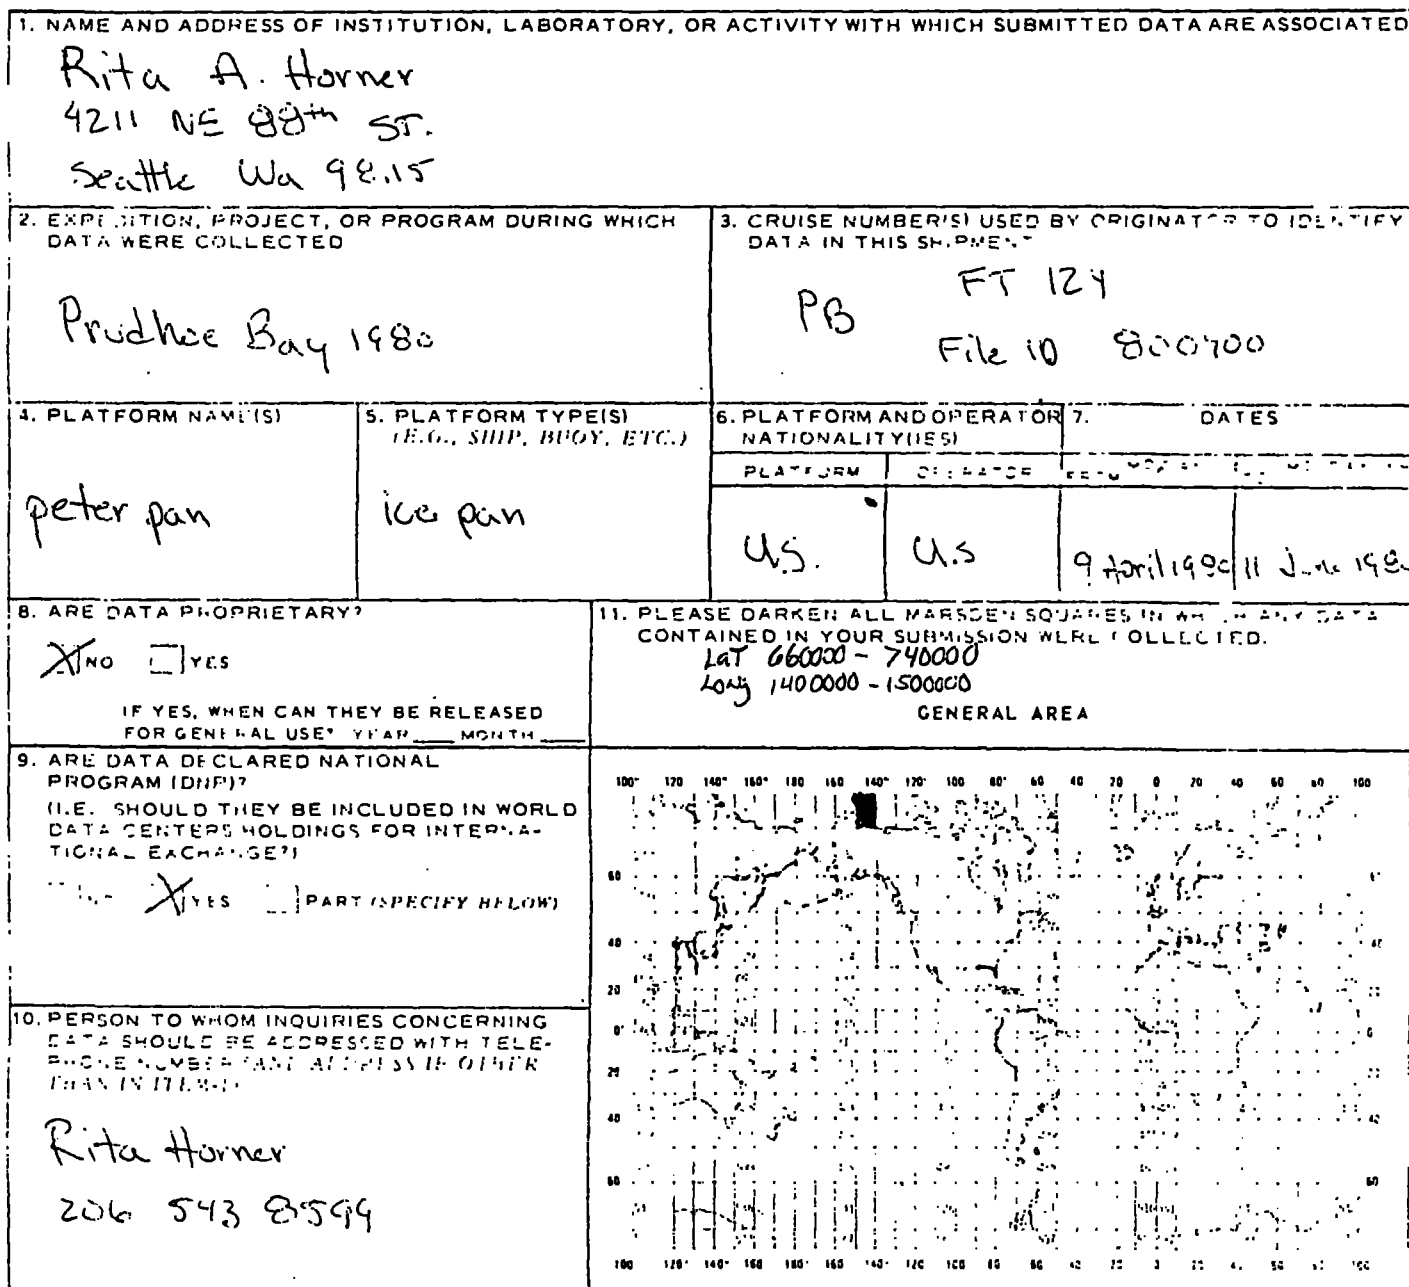 1. NAME AND ADDRESS OF INSTITUTION, LABORATORY, OR ACTIVITY WITH WHICH SUBMITTED DATA ARE ASSOCIATED
Rita A. Horner
4211 NE 88th ST.
Seattle Wa
2. EXPEDITION, PROJECT, OR PROGRAM DURING WHICH
DATA WERE COLLECTED
Prudhoe Bay 1980
3. CRUISE NUMBER(S) USED BY ORIGINATOR TO IDENTIFY
DATA IN THIS SHIPMENT
FT 124
PB
File ID
4. PLATFORM NAME(S)
peter pan
5. PLATFORM TYPE(S)
(E.G., SHIP, BUOY, ETC.)
ice pan
6. PLATFORM AND OPERATOR
NATIONALITY(IES)
PLATFORM OPERATOR
U.S. U.S
7. DATES
9 April 1980 11 June 1980
8. ARE DATA PROPRIETARY?
NO YES
IF YES, WHEN CAN THEY BE RELEASED
FOR GENERAL USE? YEAR ____ MONTH ____
9. ARE DATA DECLARED NATIONAL
PROGRAM (DNP)?
(I.E. SHOULD THEY BE INCLUDED IN WORLD
DATA CENTERS HOLDINGS FOR INTERNA-
TIONAL EXCHANGE?)
YES PART (SPECIFY BELOW)
10. PERSON TO WHOM INQUIRIES CONCERNING
DATA SHOULD BE ADDRESSED WITH TELE-
PHONE NUMBER (AND ADDRESS IF OTHER
THAN IN ITEM-1)
Rita Horner
206 543 8599
11. PLEASE DARKEN ALL MARSDEN SQUARES IN WHICH ANY DATA
CONTAINED IN YOUR SUBMISSION WERE COLLECTED.
LaT 660000 - 740000
Long 1400000 - 1500000
GENERAL AREA
100° 120 140° 160° 180° 160° 140° 120 100° 80° 60 40 20 0 20 40 60 80 100
60
40 40
20
0° 0
20
40 40
60 60